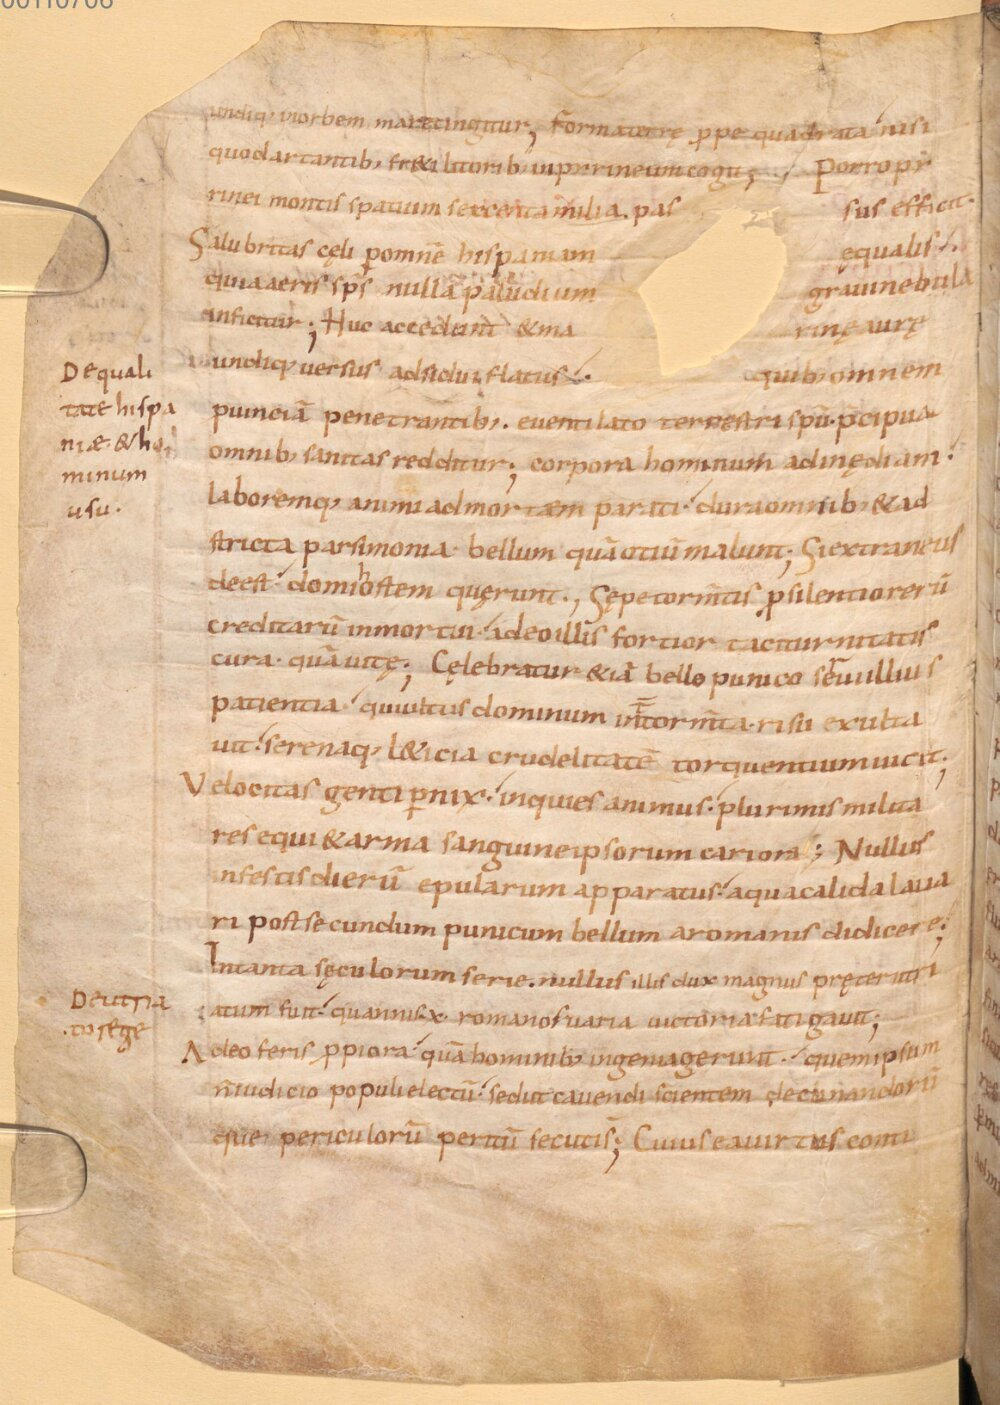 00110706
undiq; inorbem mari cingitur; Forma terrę ꝓpe quadrata nisi
quod artantib; fr&i litorib; in pyrineum cogit; Porro pi
rinei montis spatium sexcenta milia. pas sus efficit.
Salubritas cęli ꝑ omnē hispaniam ęqualis.
quia aeris sp̄s nullā paludium graui nebula
inficitur; Huc accedunt & ma rinę aurę
undiq; uersus adsidui flatus. quib; omnem
De quali
tate hispa
niæ & ho
minum
usu.
puinciā penetrantib;. euentilato terrestri spū. p̄cipua
omnib; sanitas redditur; corpora hominum ad inędiam.
laboremq; animi ad mortæm parati. dura omnib; & ad
stricta parsimonia. bellum quā otiū malunt; Si extraneus
deest. domi hostem quęrunt.; Sępe torm̄tis ꝓ silentio rerū
creditarū inmortui. adeo illis fortior taciturnitatis
cura. quā uitę; Cęlebratur & iā bello punico serui illius
patientia. qui ultus dominum int̄ torm̄ta. risu exulta
uit. serenaq; l&icia crudelitatē torquentium uicit;
Velocitas genti ꝑnix. inquies animus. plurimis milita
res equi & arma sanguine ipsorum cariora; Nullus
in festis dierū epularum apparatus. aqua calida laua
ri post secundum punicum bellum a romanis didicere;
In tanta sęculorum serie. nullus illis dux magnus pręter uiri
De uiria
to rege
atum fuit. qui annis x. romanos uaria uictoria fatigauit;
Adeo feris ꝓpiora. quā hominib; ingenia gerunt. quem ipsum
n̄ iudicio populi electū. sed ut cauendi scientem declinandorū
que periculorū peritū secutis; Cuius ea uirtus conti